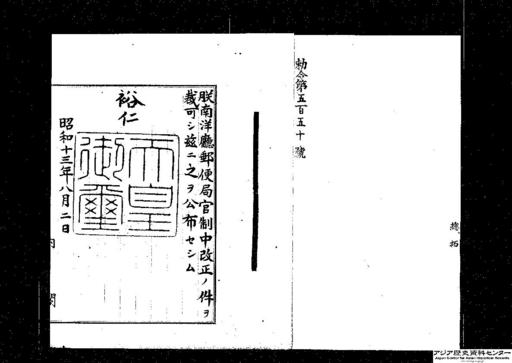 勅令第五百五十號
朕南洋廳郵便局官制中改正ノ件ヲ
裁可シ茲ニ之ヲ公布セシム
裕仁
天皇御璽
昭和十三年八月二日
内閣
アジア歴史資料センター
Japan Center for Asian Historical Records